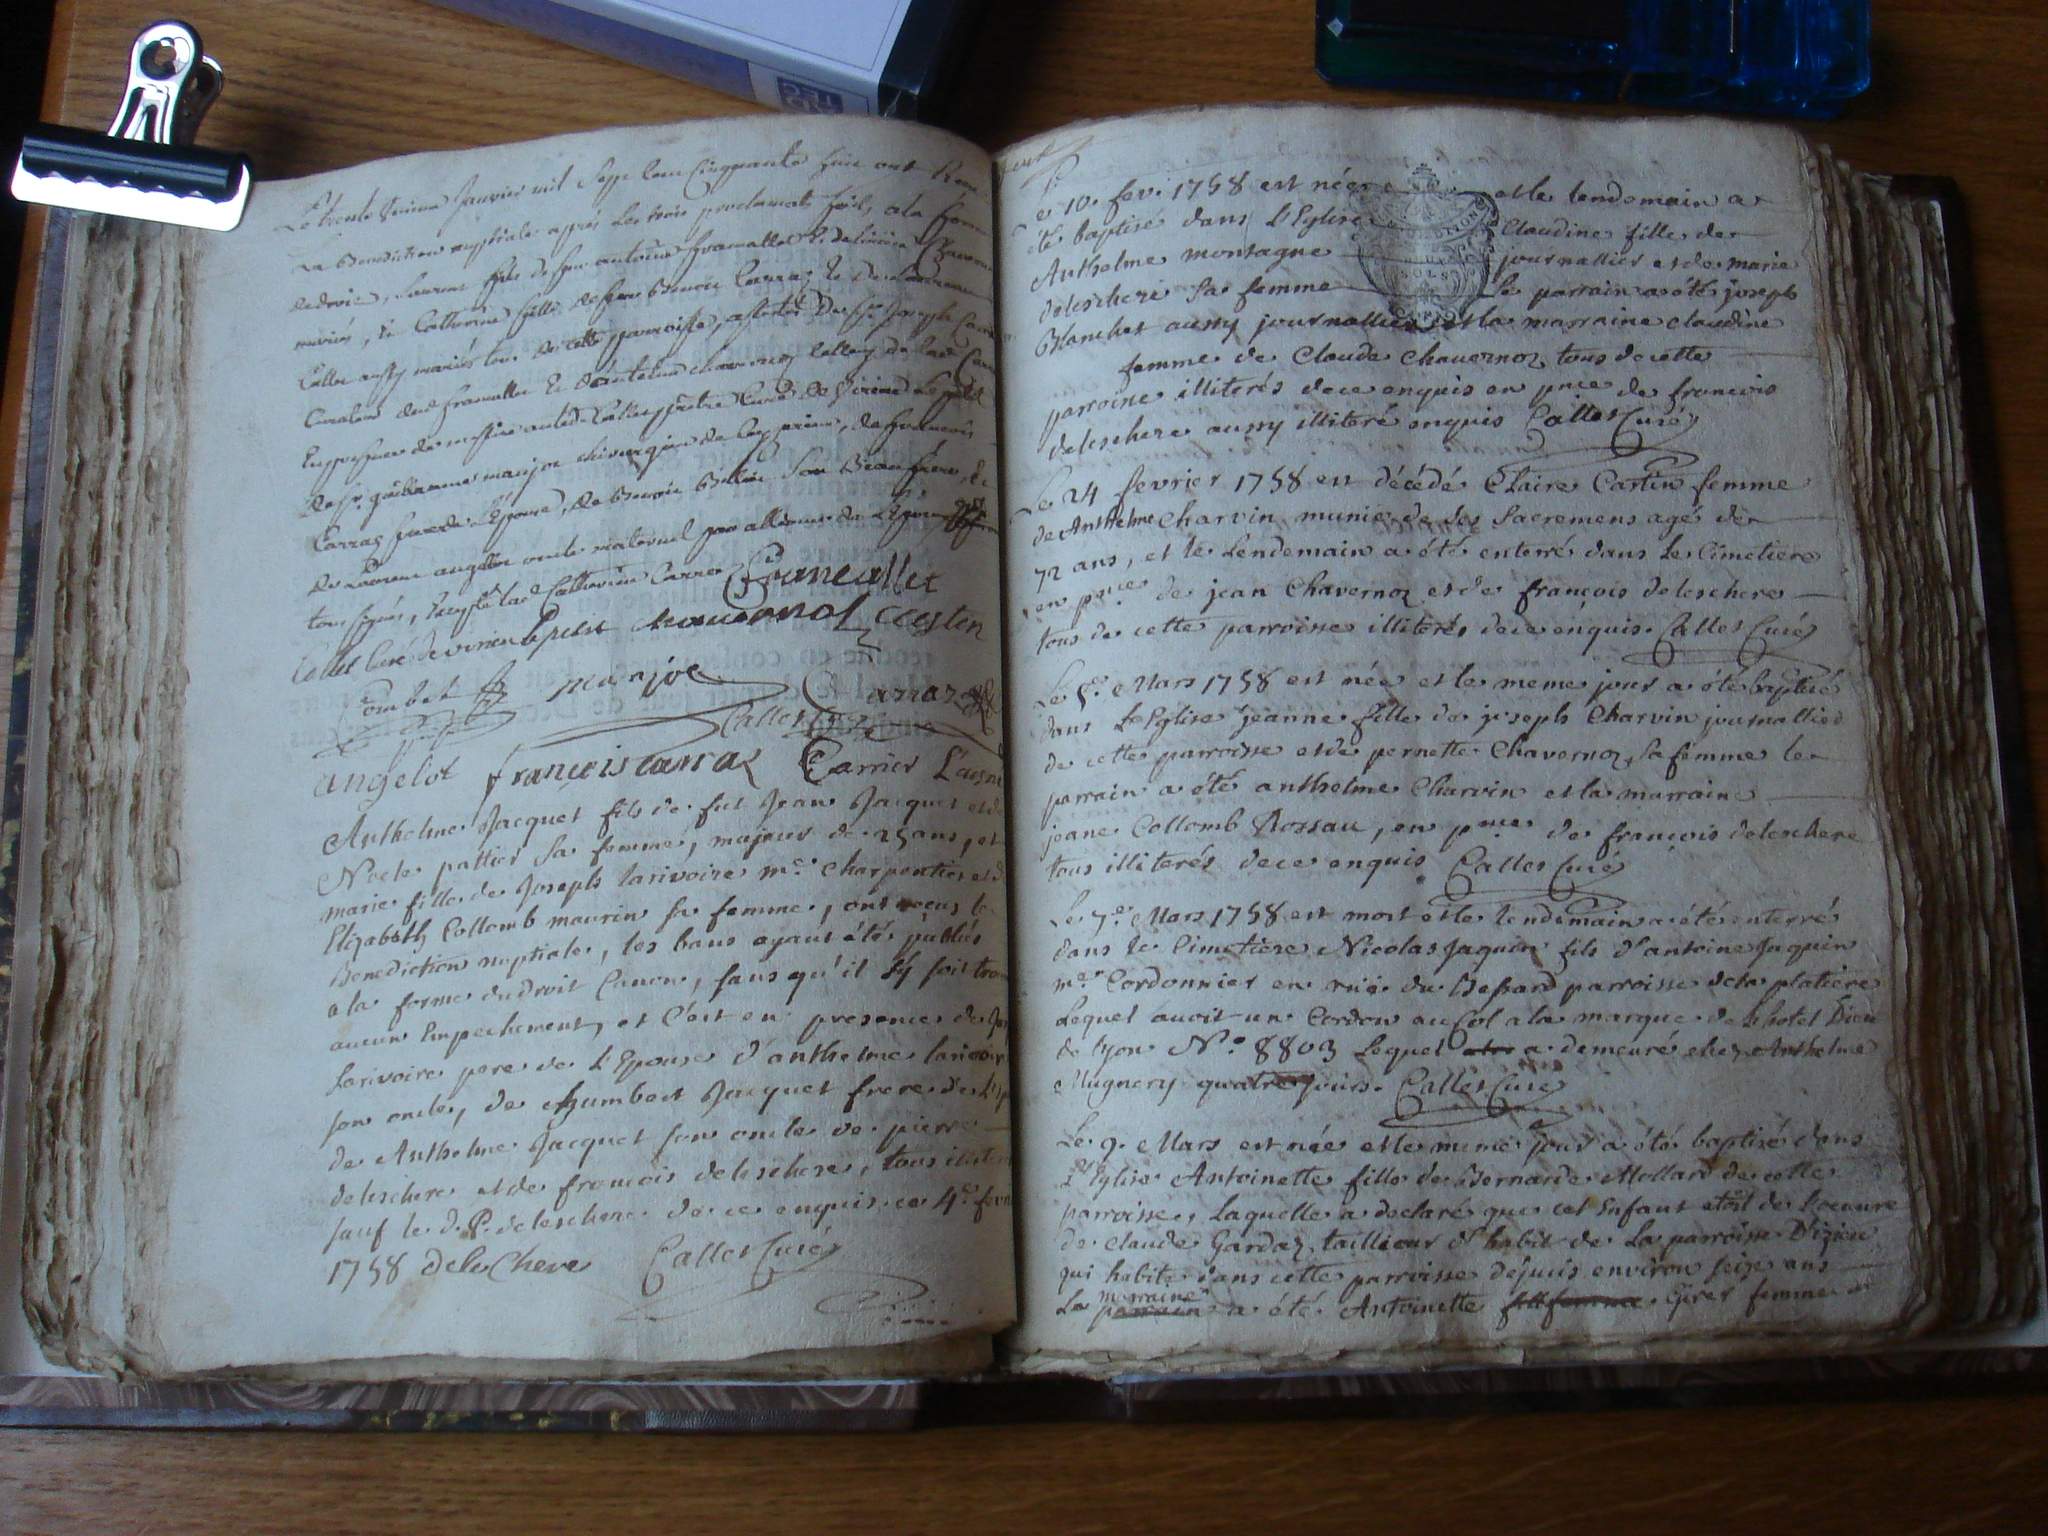 Le trente unieme Janvier mil Sept Cent Cinquante huit ont Reçu
La Benediction nuptiale après Les trois proclamats faits, a la forme
dedroit, Laurent fils de feu antoine francallet
mariés, & Catherine fille de feu Benoit Carraz & de
Callet aussy mariés tous de cette parroisse, assistés de Sr. Joseph
Curateur dud francallet & d'
En presence de messire Callet prêtre Curé de Virieu Le petit
de Sr. guillaume manjot chirurgien de , de francois
Carraz frere de L'Epouse, de Benoit Billiet Son Beaufrere, de
De Laurent angelot oncle maternel par alliance de L'Epouse
tous signés, Excepté lad Catherine Carraz Francallet
Callet Curé de virieu le petit chavornol Costin
Combet manjot Carraz
Callet Curé
angelot françois carraz Carrier L'aisné
Anthelme Jacquet fils de fut Jean Jacquet et de
Noele pattier Sa femme, majeur de 25 ans, et
marie fille de Joseph larivoire me. Charpentier et d
Elizabeth Collomb maurin sa femme, ont reçus la
Benediction nuptiale, les bans ayant été publiés
a la forme dudroit Canon, sans qu'il s'y soit trou
aucun Empechement, et C'est en presence de
Larivoire pere de L'Epouse d'anthelme larivoire
son oncle, de humbert Jacquet frere de L'Ep
de Anthelme Jacquet son oncle de pierre
deleschere et de francois deleschere, tous illiter
sauf le d. P. deleschere de ce enquis. ce 4e. fevri
1758 deleChere Callet Curé
Le 10. fevr. 1758 est née et le lendemain a
été baptisé dans L'Eglise Claudine fille de
Anthelme montagne journallier et de marie
deleschere Sa femme Le parrain a été joseph
Blanchet aussy journallier et la marraine claudine
femme de Claude Chavernoz tous de cette
parroisse illiterés dece enquis en pnce de francois
deleschere aussy illiteré enquis Callet Curé
Le 24 fevrier 1758 est décédé Claire Costin femme
de Anthelme Charvin munie de Ses Sacremens agé de
72 ans, et le Lendemain a été enterré dans Le Cimetiere
en pnce de jean Chavernoz et de françois deleschere
tous de cette parroisse illiterés dece enquis. Callet Curé
Le 5e. Mars 1758 est née et le meme jour a été baptisé
dans L'Eglise jeanne fille de joseph Charvin journallier
de cette parroisse et de pernette Chavernoz, sa femme le
parrain a été anthelme Charvin et la marraine
jeane Collomb Rossau, en pnce de francois deleschere
tous illiterés dece enquis Callet Curé
Le 7e. Mars 1758 est mort et le lendemain a été enterré
dans le Cimetiere Nicolas Jaquin fils d'antoine Jaquin
me. Cordonnier en ruë du Bessard parroisse de la platiere
Lequel avoit un Cordon au Col a la marque de l'hotel Dieu
de Lyon No. 8803 Lequel a demeuré chez Anthelme
Mugnery quatre jours. Callet Curé
Le 9. Mars est née et le meme jour a été baptisé dans
L'Eglise Antoinette fille de Bernarde Mollard de cette
parroisse, Laquelle a declaré que cet Enfant etoit de l'oeuvre
de Claude Gardaz, tailleur d'habit de La parroisse D'izieu
qui habite dans cette parroisse depuis environ seize ans
La marraine a été Antoinette Girer femme de